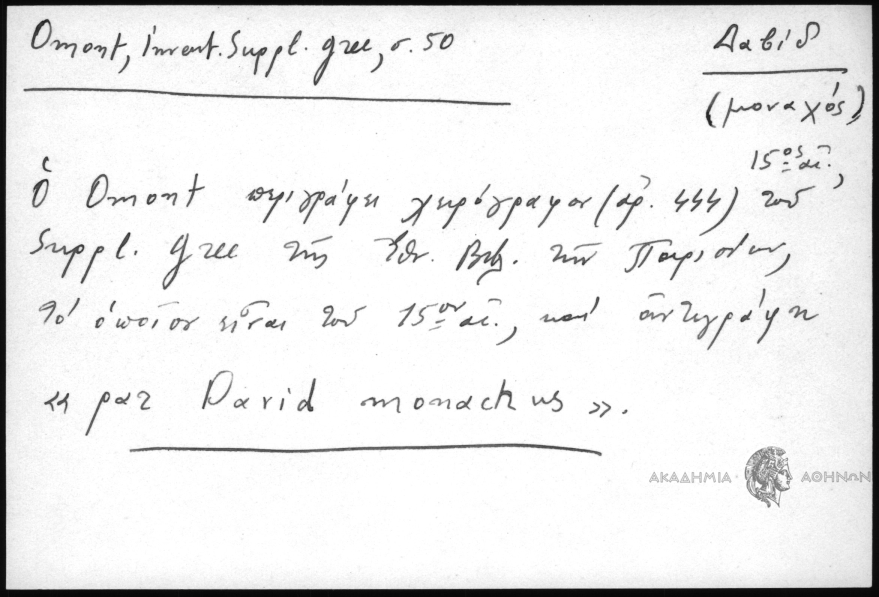 Omont, Invent. Suppl. grec, σ. 50
Δαβίδ
(μοναχός)
15ος αἰ.,
Ὁ Omont περιγράφει χειρόγραφον (ἀρ. 444) τοῦ
Suppl. grec τῆς Ἐθν. Βιβ. τῶν Παρισίων,
τὸ ὁποῖον εἶναι τοῦ 15ου αἰ., καὶ ἀντεγράφη
«par David monachus».
ΑΚΑΔΗΜΙΑ ΑΘΗΝΩΝ